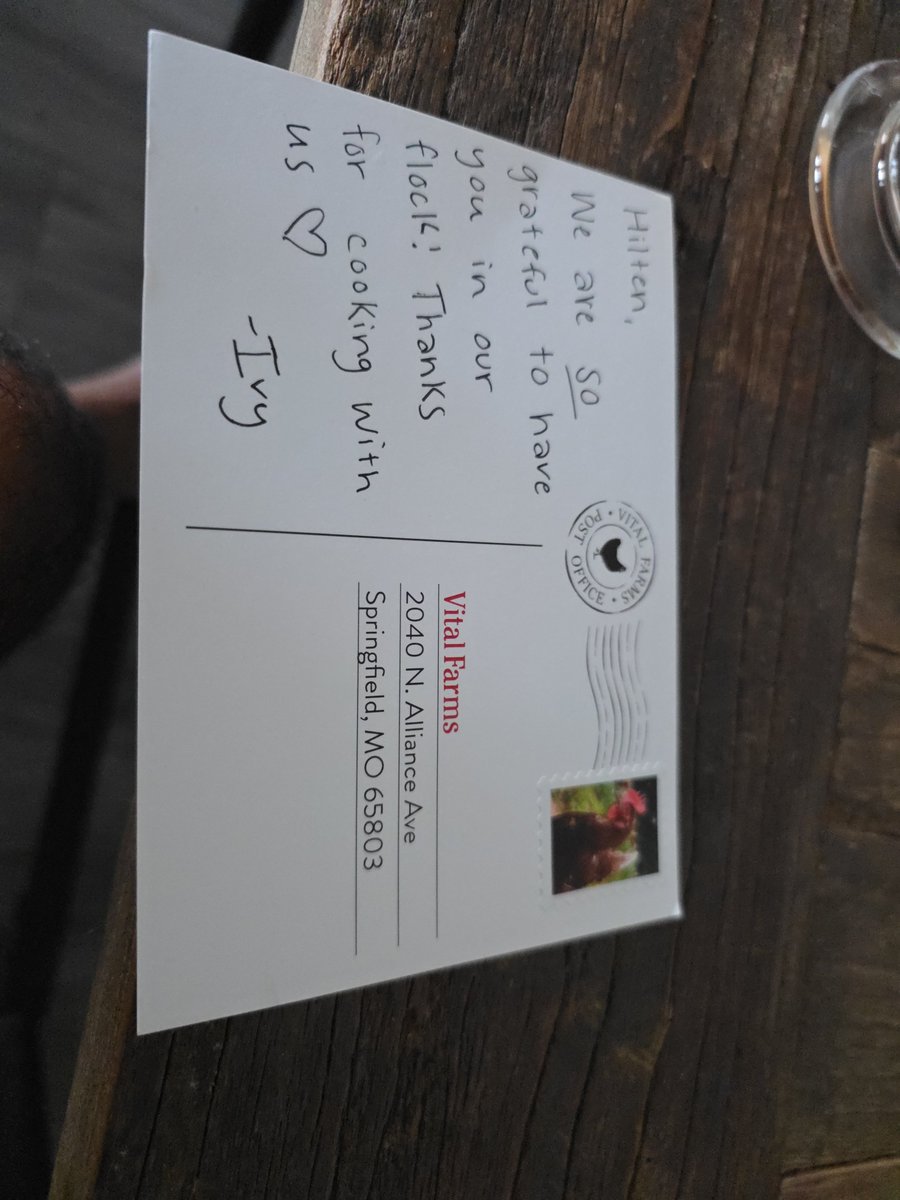 Hilten,
We are so
grateful to have
you in our
flock! Thanks
for cooking with
us ♡
-Ivy
VITAL FARMS
POST OFFICE
Vital Farms
2040 N. Alliance Ave
Springfield, MO 65803